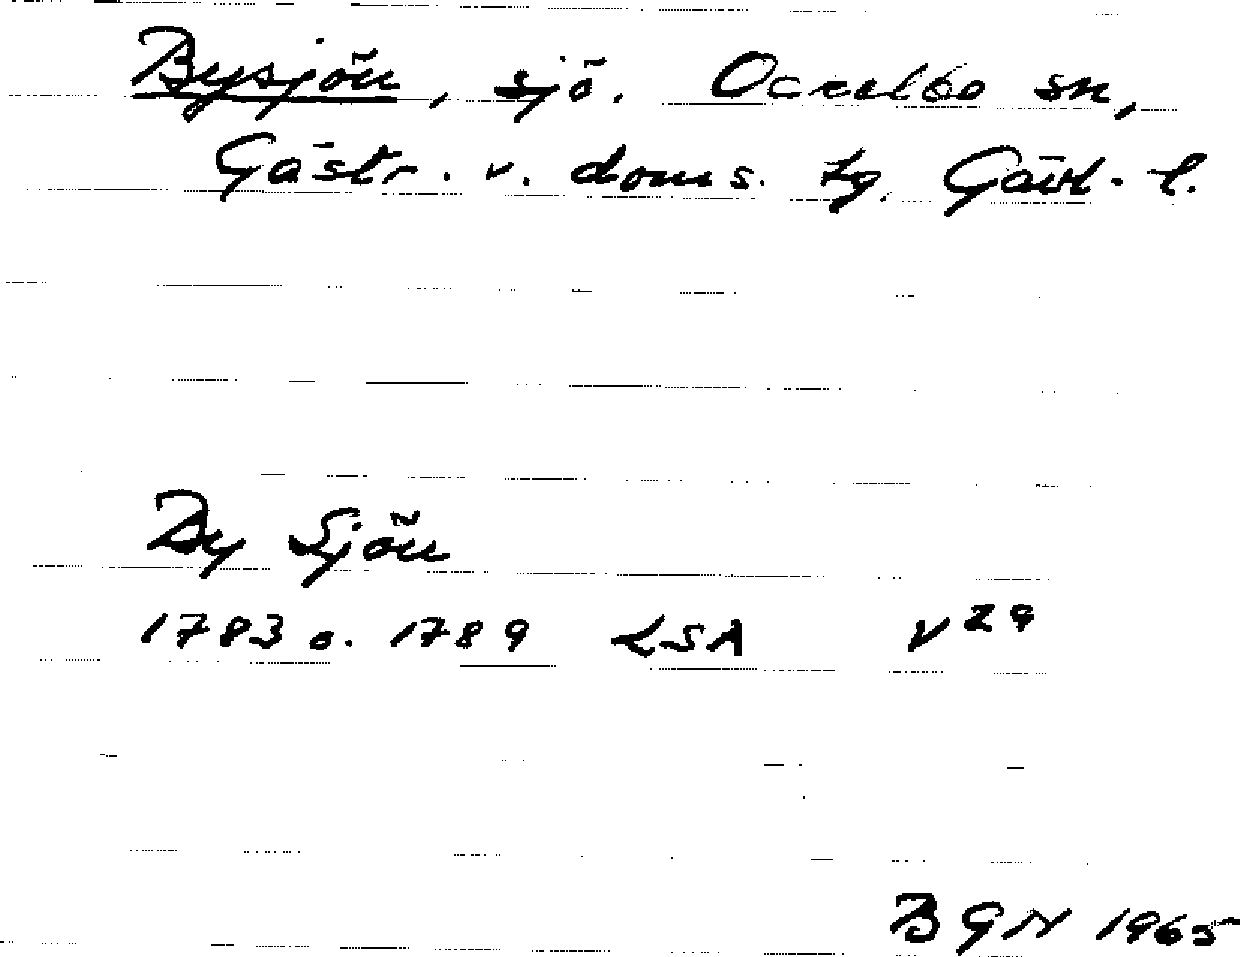 Bysjön, sjö. Ockelbo sn,
Gästr. v. doms. tg. Gävl. l.
By Sjön
1783 o. 1789 LSA V 29
BGN 1965